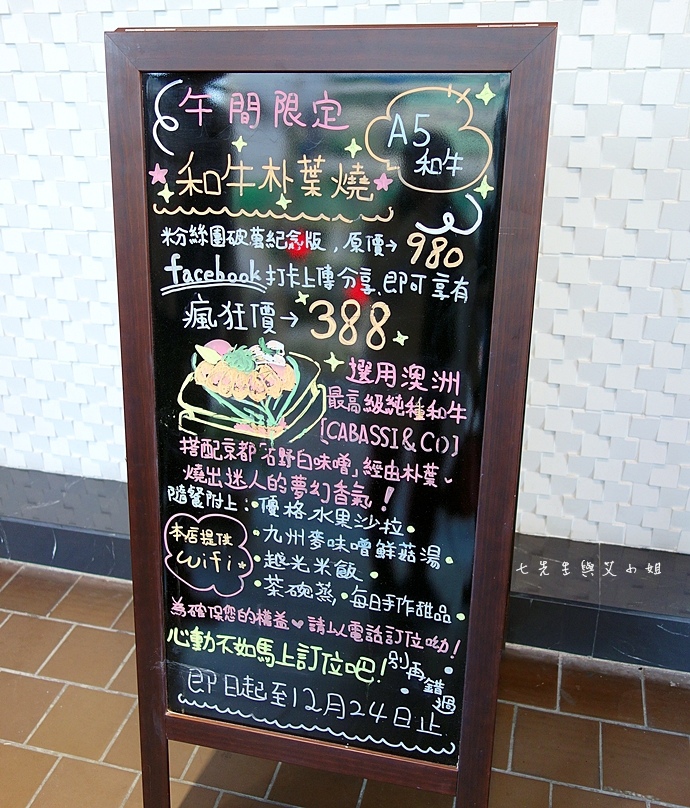 午間限定
A5
和牛
和牛朴葉燒
粉絲團破萬紀念版，原價→980
facebook打卡上傳分享，即可享有
瘋狂價→388
選用澳洲
最高級純種和牛
[CABASSI&CO]
搭配京都「石野白味噌」經由朴葉
燒出迷人的夢幻香氣！
隨餐附上：優格水果沙拉
九州麥味噌鮮菇湯
越光米飯
茶碗蒸 • 每日手作甜品
本店提供
wifi
為確保您的權益♥請以電話訂位呦！
心動不如馬上訂位吧！別再錯過
即日起至12月24日止
七先生與艾小姐